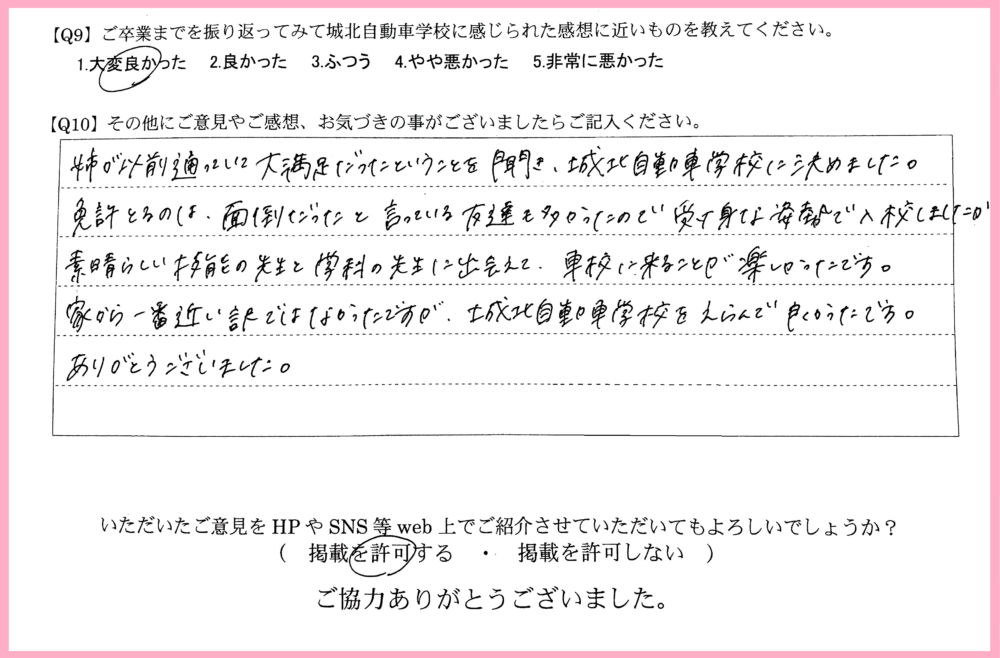 【Q9】ご卒業までを振り返ってみて城北自動車学校に感じられた感想に近いものを教えてください。
1.大変良かった 2.良かった 3.ふつう 4.やや悪かった 5.非常に悪かった
【Q10】その他にご意見やご感想、お気づきの事がございましたらご記入ください。
姉が以前通っていて大満足だったということを聞き、城北自動車学校に決めました。
免許とるのは、面倒だったと言っている友達も多かったので受け身な姿勢で入校しましたが
素晴らしい技能の先生と学科の先生に出会えて、車校に来ることが楽しかったです。
家から一番近い訳ではなかったですが、城北自動車学校をえらんで良かったです。
ありがとうございました。
いただいたご意見をHPやSNS等web上でご紹介させていただいてもよろしいでしょうか？
( 掲載を許可する ・ 掲載を許可しない )
ご協力ありがとうございました。